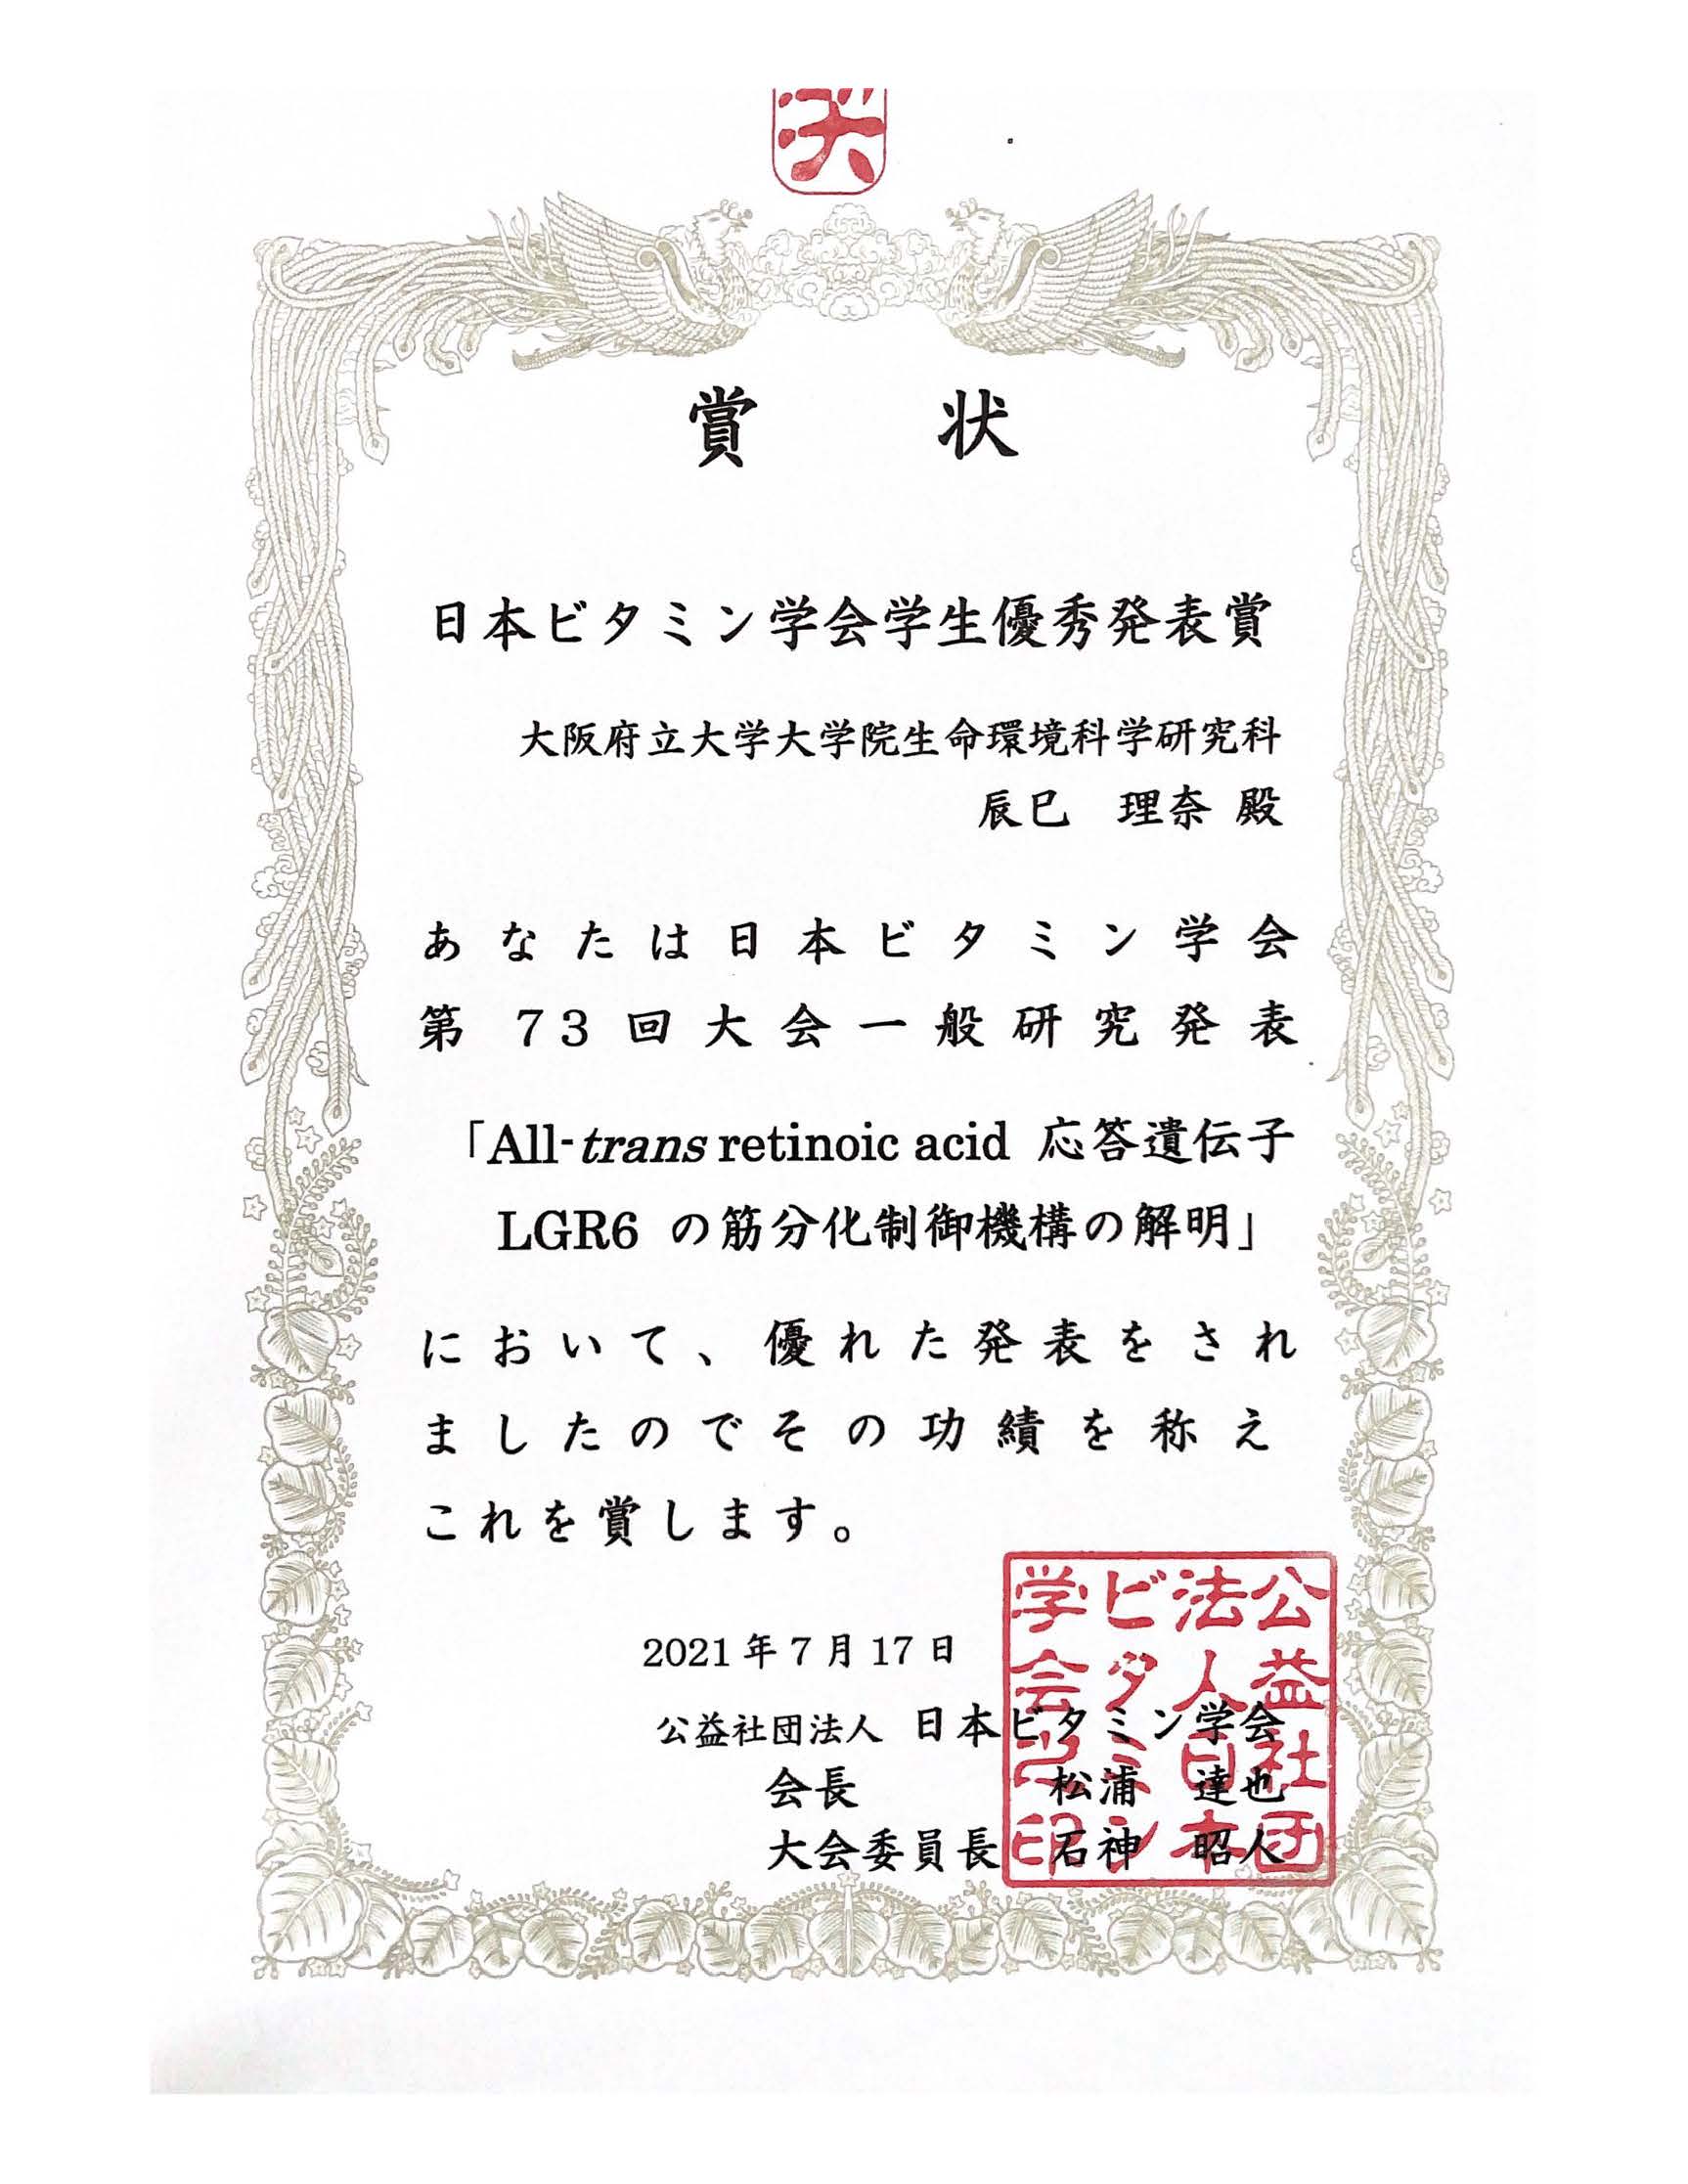 賞 状
日本ビタミン学会学生優秀発表賞
大阪府立大学大学院生命環境科学研究科
辰巳 理奈 殿
あなたは日本ビタミン学会
第 73 回大会一般研究発表
「All-trans retinoic acid 応答遺伝子
LGR6 の筋分化制御機構の解明」
において、優れた発表をされ
ましたのでその功績を称え
これを賞します。
2021 年 7 月 17 日
公益社団法人 日本ビタミン学会
会長 松浦 達也
大会委員長 石神 昭人
公益社団
法人日本
ビタミン
学会之印